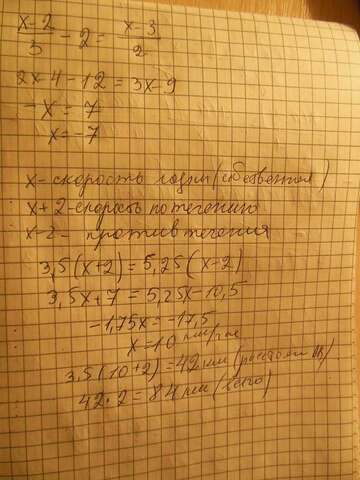 x-2/3 - 2 = x-3/2
2x-4-12=3x-9
-x=7
x=-7
x-скорость лодки (собственная)
x+2-скорость по течению
x-2- против течения
3,5(x+2)=5,25(x-2)
3,5x+7=5,25x-10,5
-1,75x=-17,5
x=10 км/час
3,5(10+2)=42 км (расстоян
42·2=84 км (всего)